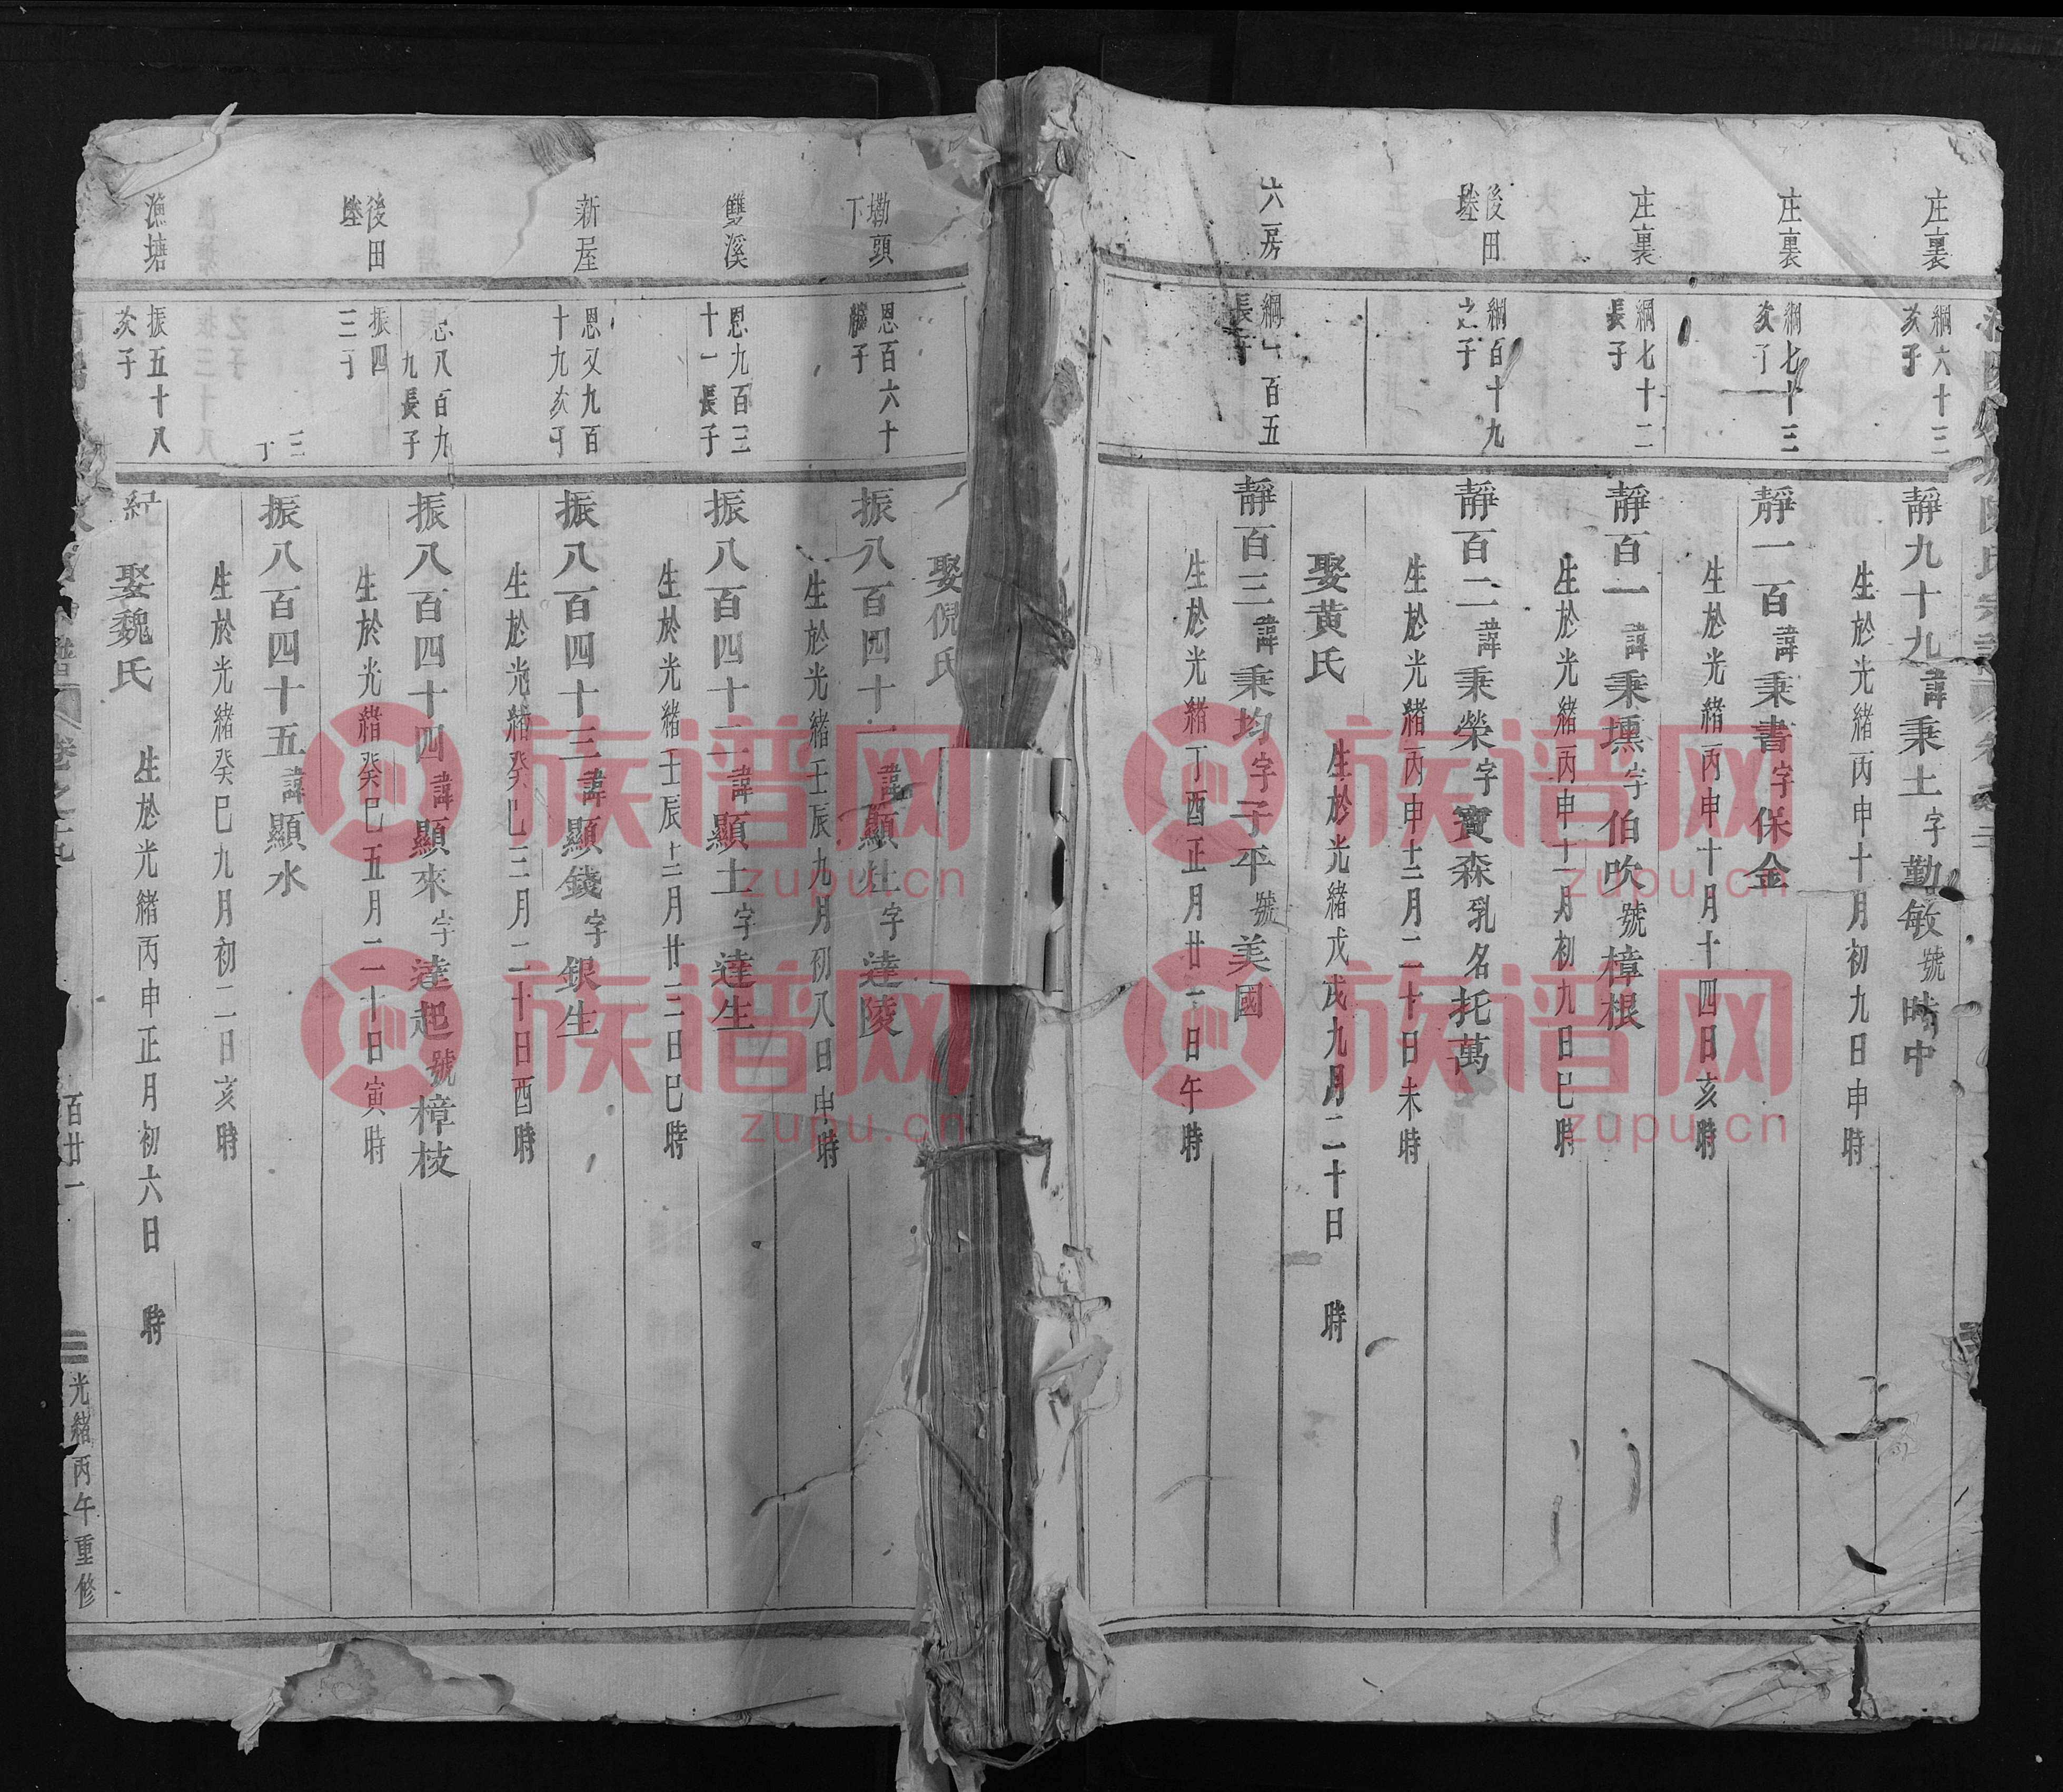 庄裏
綱六十三
次子
靜九十九諱秉土字勤敏號時中
生於光緒丙申十月初九日申時
庄裏
綱七十三
次子
靜一百諱秉書字保金
生於光緒丙申十月十四日亥時
庄裏
綱七十二
長子
靜百一諱秉壎字伯吹號樟根
生於光緒丙申十一月初九日巳時
後田
墘
綱百十九
之子
靜百二諱秉榮字寶森乳名托萬
生於光緒丙申十二月二十日未時
娶黄氏
生於光緒戊戌九月二十日 時
六房
綱一百五
長子
靜百三諱秉均字子平號美國
生於光緒丁酉正月廿一日午時
娶倪氏
墈頭
下
恩百六十
繼子
振八百四十一諱顯灶字達陵
生於光緒壬辰九月初八日申時
雙溪
恩九百三
十一長子
振八百四十二諱顯土字達生
生於光緒壬辰十二月廿三日巳時
新屋
恩又九百
十九次子
振八百四十三諱顯錢字銀生
生於光緒癸巳三月二十日酉時
恩八百九
九長子
振八百四十四諱顯來字達起號樟枝
生於光緒癸巳五月二十日寅時
後田
墘
振四
三子
振八百四十五諱顯水
生於光緒癸巳九月初二日亥時
漁塘
振五十八
次子
紀
娶魏氏
生於光緒丙申正月初六日 時
譜
卷之
百廿一
光緒丙午重修
族谱网
zupu.cn
族谱网
zupu.cn
族谱网
zupu.cn
族谱网
zupu.cn